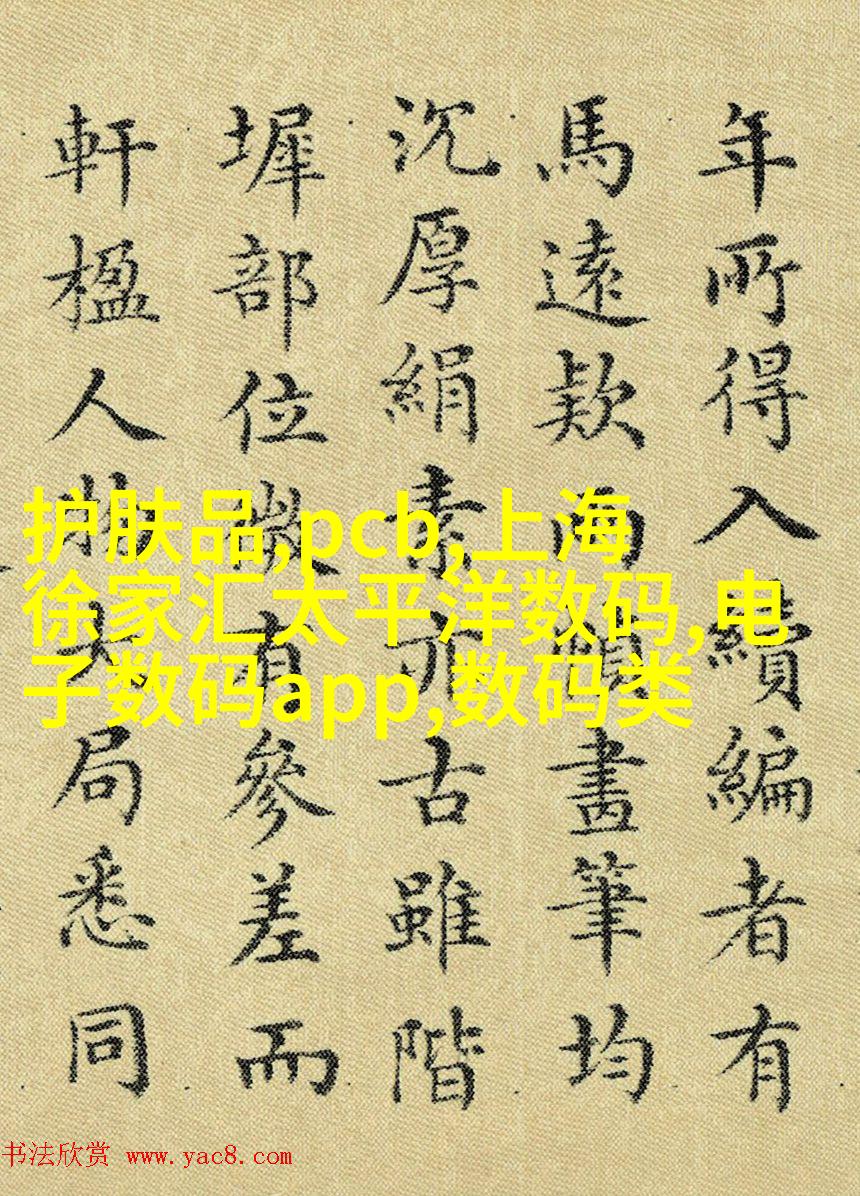 年所得入續編者有
馬遠款兩幀畫筆均
沉厚絹素亦古雖階
墀部位微有參差而
軒楹人物大局悉同
护肤品,pcb,上海
徐家汇太平洋数码,电
子数码app,数码类
书法欣赏 www.yac8.com